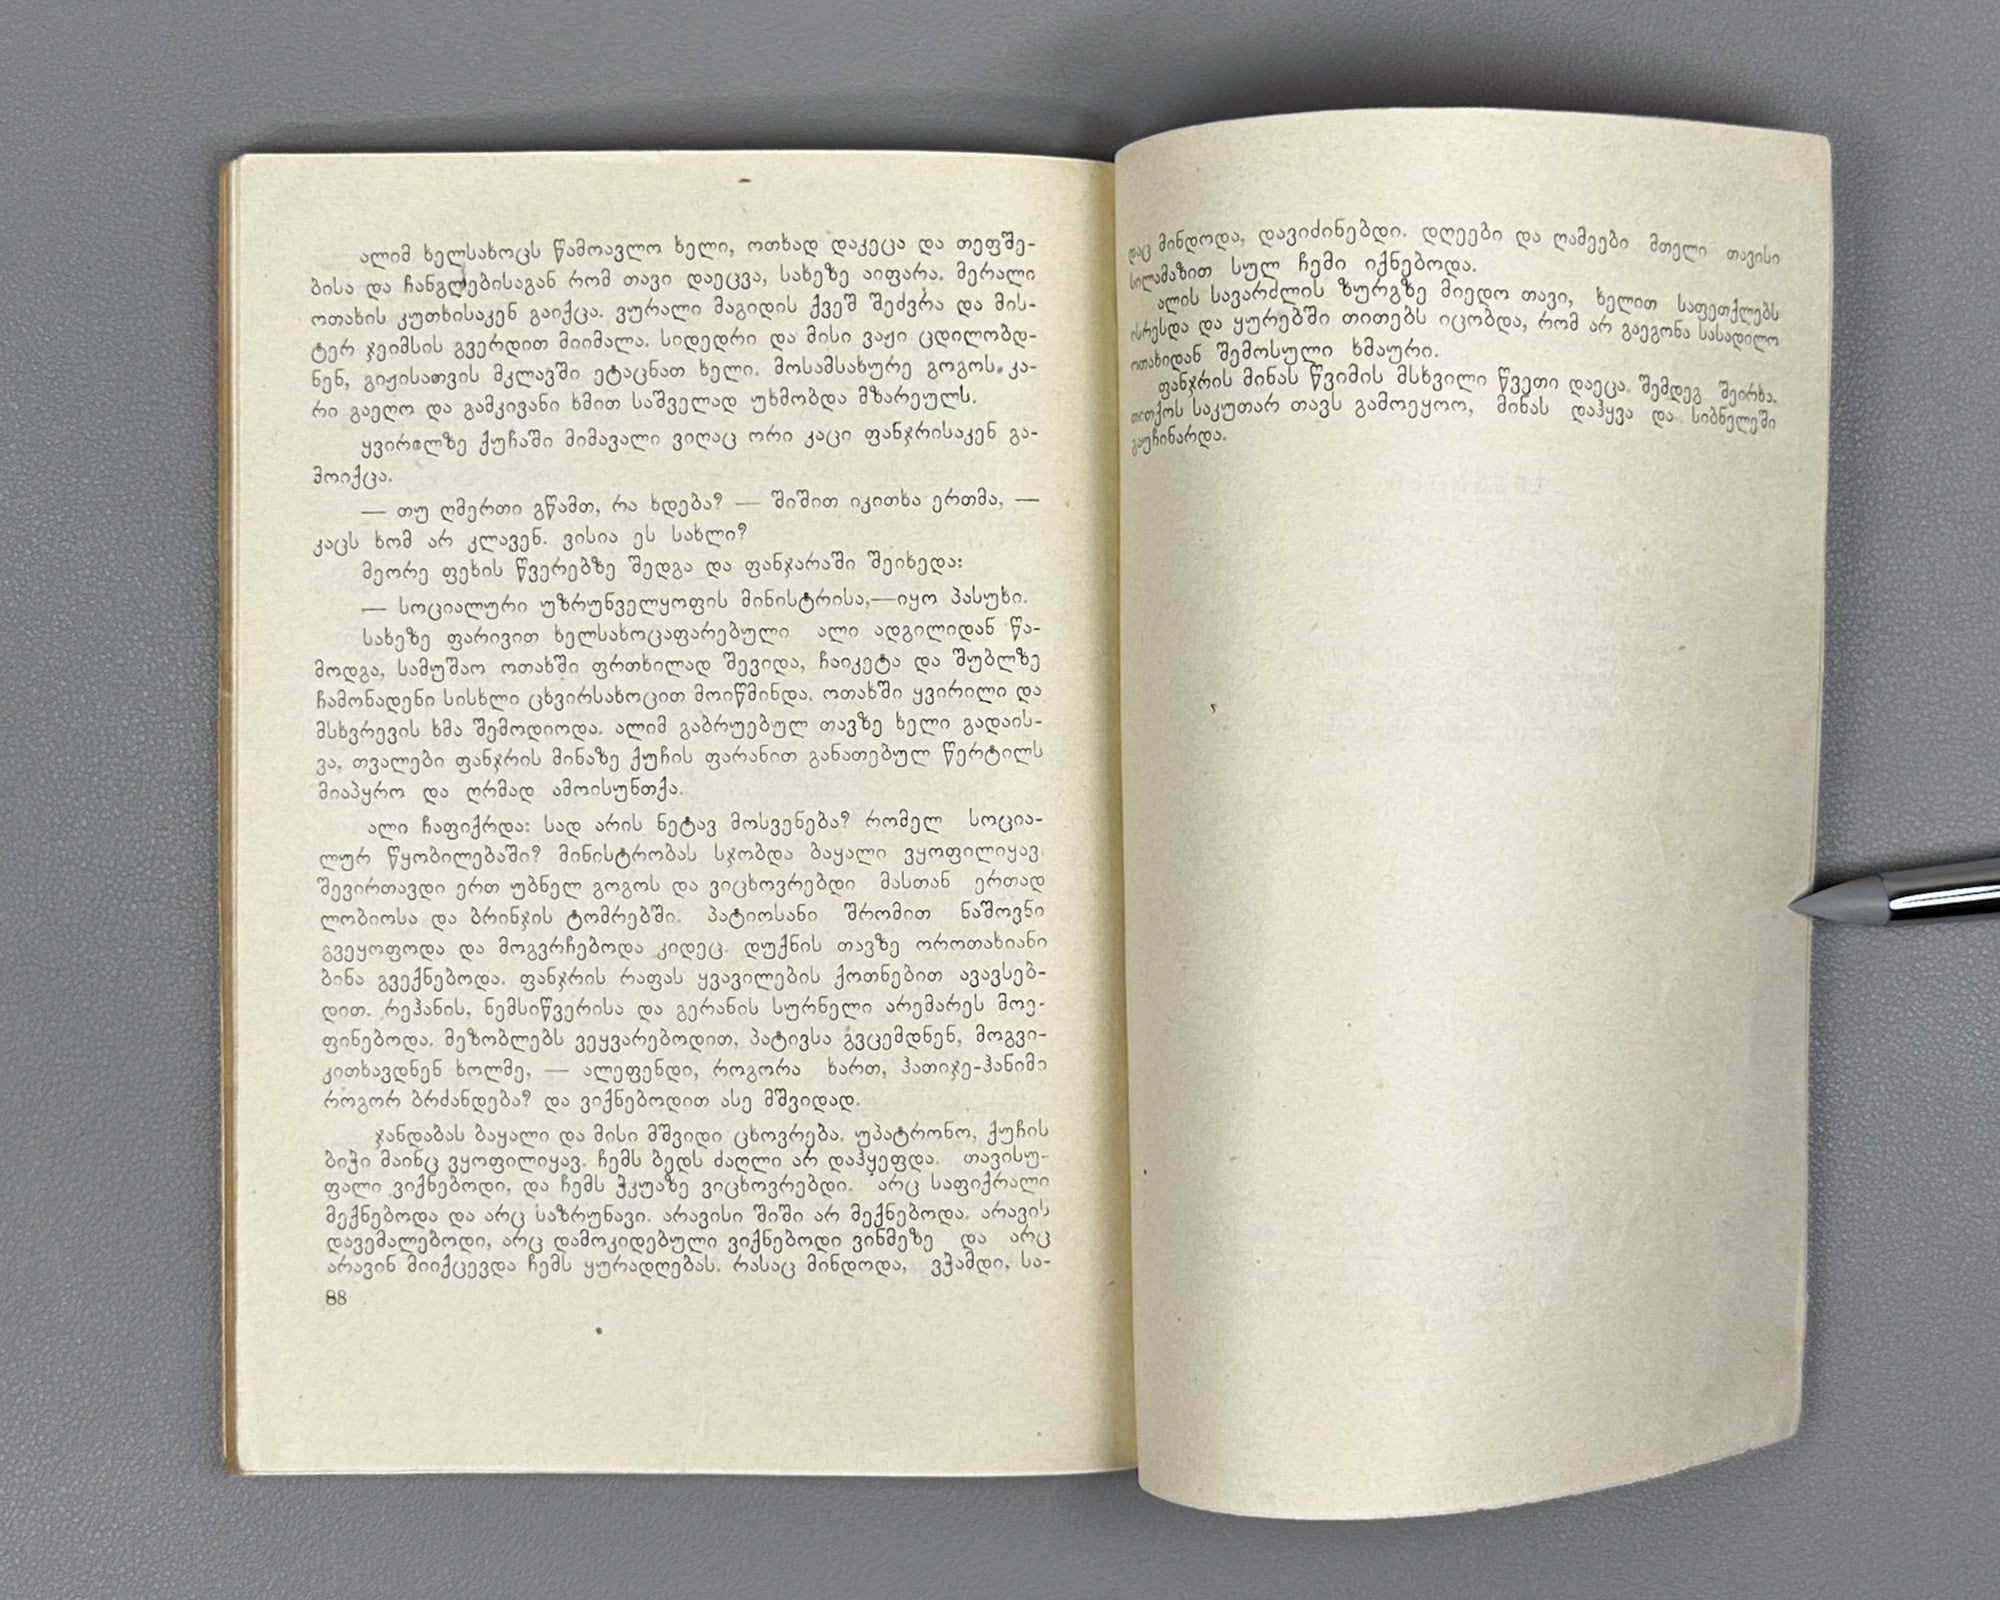 ალიმ ხელსახოცს წამოავლო ხელი, ოთხად დაკეცა და თეფშე-
ბისა და ჩანგლებისაგან რომ თავი დაეცვა, სახეზე აიფარა. მერალი
ოთახის კუთხისაკენ გაიქცა. ვურალი მაგიდის ქვეშ შეძვრა და მის-
ტერ ჯეიმსის გვერდით მიიმალა. სიდედრი და მისი ვაჟი ცდილობდ-
ნენ, გიჟისათვის მკლავში ეტაცნათ ხელი. მოსამსახურე გოგოს კა-
რი გაეღო და გამკივანი ხმით საშველად უხმობდა მზარეულს.
ყვირილზე ქუჩაში მიმავალი ვიღაც ორი კაცი ფანჯრისაკენ გა-
მოიქცა.
— თუ ღმერთი გწამთ, რა ხდება? — შიშით იკითხა ერთმა, —
კაცს ხომ არ კლავენ. ვისია ეს სახლი?
მეორე ფეხის წვერებზე შედგა და ფანჯარაში შეიხედა:
— სოციალური უზრუნველყოფის მინისტრისა,—იყო პასუხი.
სახეზე ფარივით ხელსახოცაფარებული ალი ადგილიდან წა-
მოდგა, სამუშაო ოთახში ფრთხილად შევიდა, ჩაიკეტა და შუბლზე
ჩამონადენი სისხლი ცხვირსახოცით მოიწმინდა. ოთახში ყვირილი და
მსხვრევის ხმა შემოდიოდა. ალიმ გაბრუებულ თავზე ხელი გადაის-
ვა, თვალები ფანჯრის მინაზე ქუჩის ფარანით განათებულ წერტილს
მიაპყრო და ღრმად ამოისუნთქა.
ალი ჩაფიქრდა: სად არის ნეტავ მოსვენება? რომელ სოცია-
ლურ წყობილებაში? მინისტრობას სჯობდა ბაყალი ვყოფილიყავ.
შევირთავდი ერთ უბნელ გოგოს და ვიცხოვრებდი მასთან ერთად
ლობიოსა და ბრინჯის ტომრებში. პატიოსანი შრომით ნაშოვნი
გვეყოფოდა და მოგვრჩებოდა კიდეც. დუქნის თავზე ოროთახიანი
ბინა გვექნებოდა. ფანჯრის რაფას ყვავილების ქოთნებით ავავსებ-
დით. რეჰანის, ნემსიწვერისა და გერანის სურნელი არემარეს მოე-
ფინებოდა. მეზობლებს ვეყვარებოდით, პატივსა გვცემდნენ, მოგვი-
კითხავდნენ ხოლმე, — ალეფენდი, როგორა ხართ, ჰათიჯე-ჰანიმი
როგორ ბრძანდება? და ვიქნებოდით ასე მშვიდად.
ჯანდაბას ბაყალი და მისი მშვიდი ცხოვრება. უპატრონო, ქუჩის
ბიჭი მაინც ვყოფილიყავ. ჩემს ბედს ძაღლი არ დაჰყეფდა. თავისუ-
ფალი ვიქნებოდი, და ჩემს ჭკუაზე ვიცხოვრებდი. არც საფიქრალი
მექნებოდა და არც საზრუნავი. არავისი შიში არ მექნებოდა. არავის
დავემალებოდი, არც დამოკიდებული ვიქნებოდი ვინმეზე და არც
არავინ მიიქცევდა ჩემს ყურადღებას. რასაც მინდოდა, ვჭამდი, სა-
88
დაც მინდოდა, დავიძინებდი. დღეები და ღამეები მთელი თავისი
სილამაზით სულ ჩემი იქნებოდა.
ალის სავარძლის ზურგზე მიედო თავი, ხელით საფეთქლებს
ისრესდა და ყურებში თითებს იცობდა, რომ არ გაეგონა სასადილო
ოთახიდან შემოსული ხმაური.
ფანჯრის მინას წვიმის მსხვილი წვეთი დაეცა. შემდეგ შეირხა.
თითქოს საკუთარ თავს გამოეყოო, მინას დაჰყვა და სიბნელეში
გაუჩინარდა.